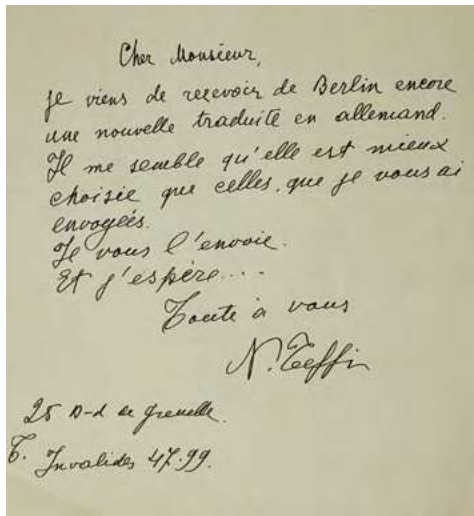 Cher Monsieur,
je viens de recevoir de Berlin encore
une nouvelle traduite en allemand.
Il me semble qu'elle est mieux
choisie que celles, que je vous ai
envoyées.
Je vous l'envoie.
Et j'espère....
Toute à vous
N. Teffi
25 B-d de Grenelle.
T. Invalides 47.99.